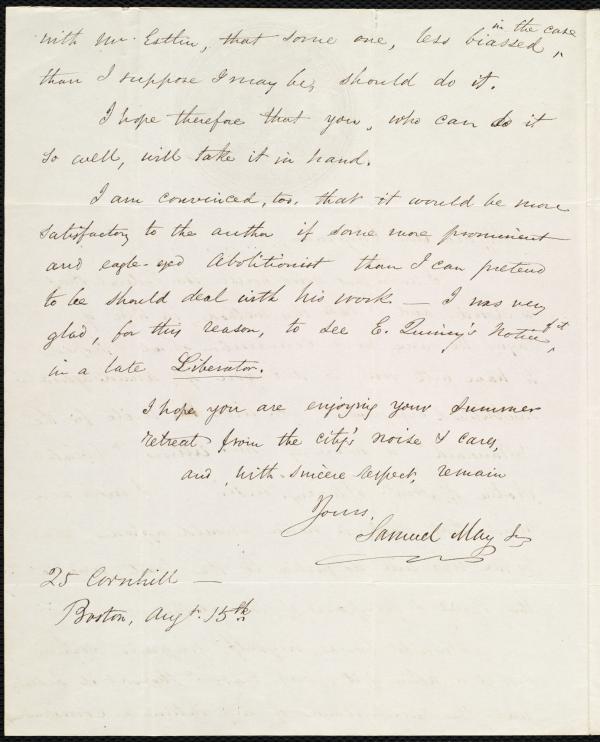 with Mr. Estlin, that some one, less biassed, in the case
than I suppose I may be, should do it.
I hope therefore that you, who can do it
so well, will take it in hand.
I am convinced, too, that it would be more
satisfactory to the author if some more prominent
and eagle-eyed Abolitionist than I can pretend
to be should deal with his work — I was very
glad, for this reason, to see E. Quincy's Notice of it,
in a late Liberator.
I hope you are enjoying your summer
retreat from the city's noise & cares,
and, with sincere respect, remain
Yours,
Samuel May Jr
25 Cornhill —
Boston, Augt. 15th